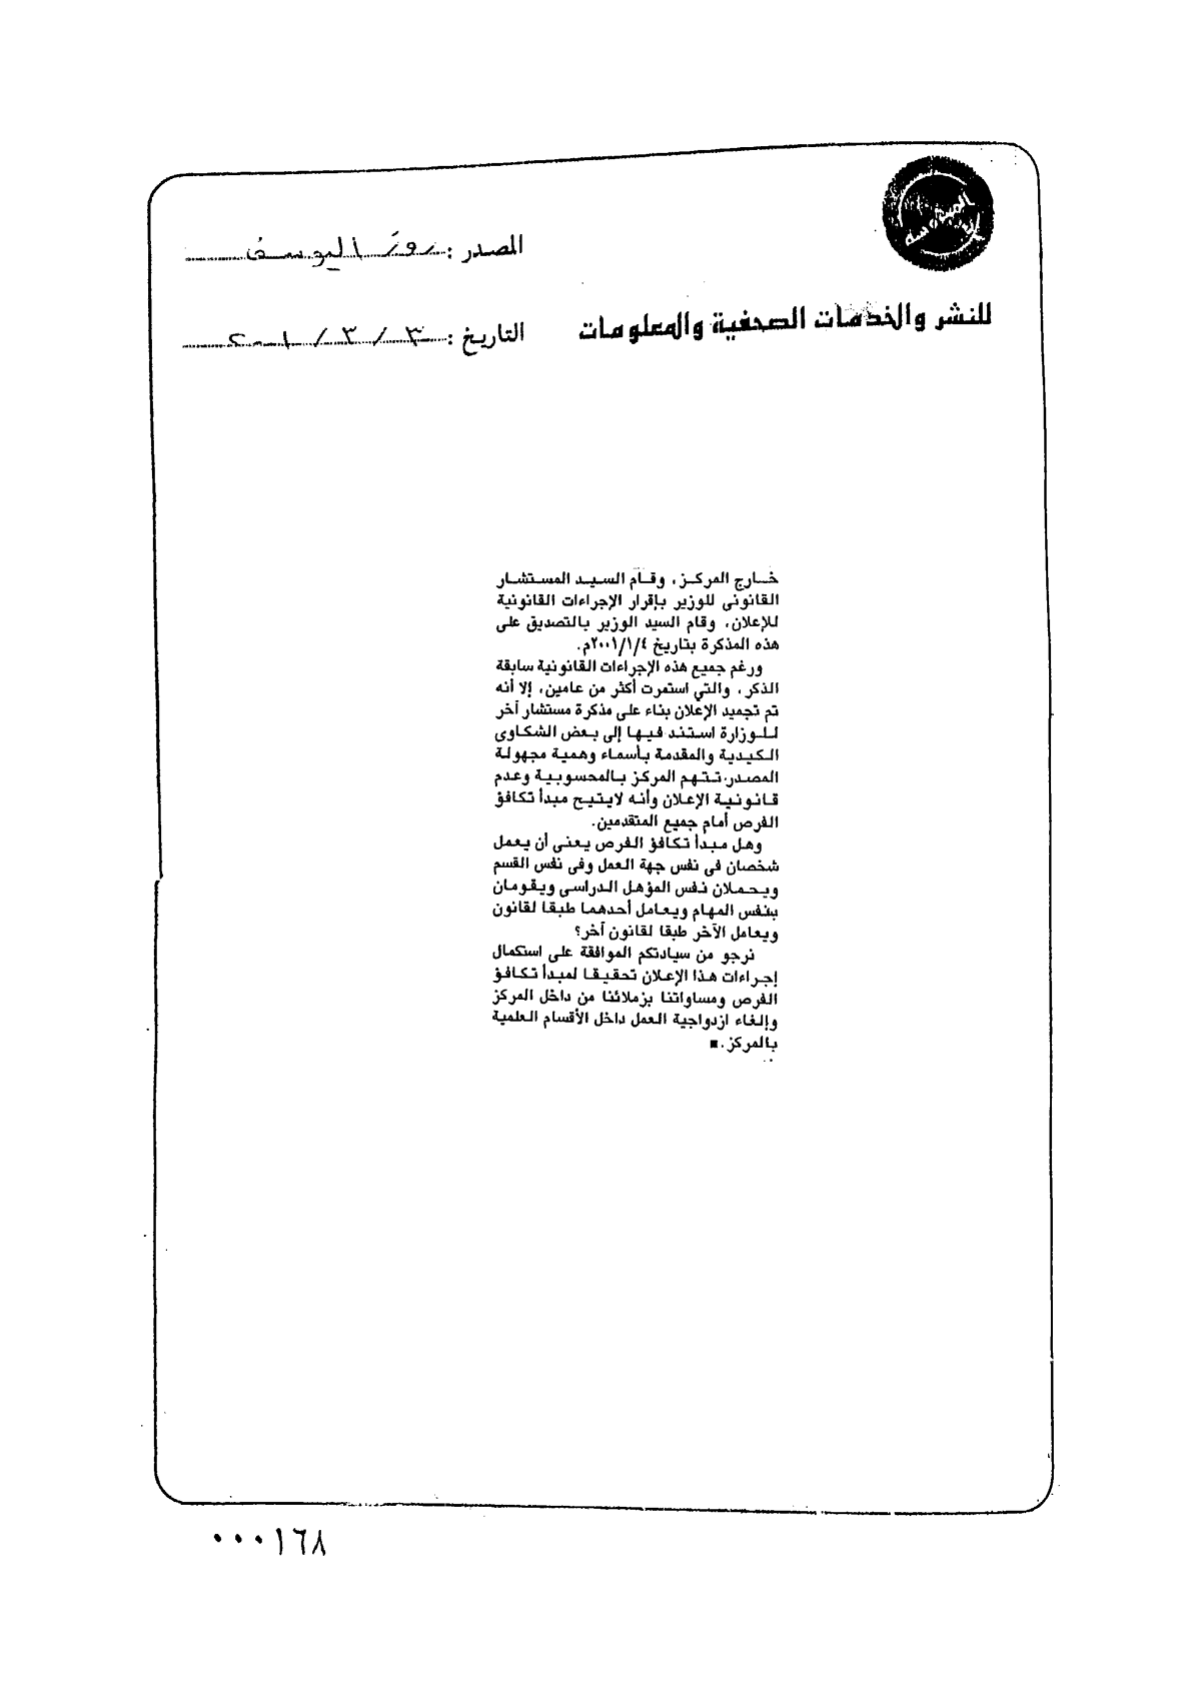 المصدر : روز اليوسف
للنشر والخدمات الصحفية والمعلومات
التاريخ : ٣ / ٣ / ٢٠٠١
خارج المركز، وقام السيد المستشار
القانونى للوزير بإقرار الإجراءات القانونية
للإعلان، وقام السيد الوزير بالتصديق على
هذه المذكرة بتاريخ ٢٠٠١/١/٤م.
ورغم جميع هذه الإجراءات القانونية سابقة
الذكر، والتي استمرت أكثر من عامين، إلا أنه
تم تجميد الإعلان بناء على مذكرة مستشار آخر
للوزارة استند فيها إلى بعض الشكاوى
الكيدية والمقدمة بأسماء وهمية مجهولة
المصدر.تتهم المركز بالمحسوبية وعدم
قانونية الإعلان وأنه لايتيح مبدأ تكافؤ
الفرص أمام جميع المتقدمين.
وهل مبدأ تكافؤ الفرص يعنى أن يعمل
شخصان فى نفس جهة العمل وفى نفس القسم
ويحملان نفس المؤهل الدراسى ويقومان
بنفس المهام ويعامل أحدهما طبقا لقانون
ويعامل الآخر طبقا لقانون آخر؟
نرجو من سيادتكم الموافقة على استكمال
إجراءات هذا الإعلان تحقيقا لمبدأ تكافؤ
الفرص ومساواتنا بزملائنا من داخل المركز
وإلغاء ازدواجية العمل داخل الأقسام العلمية
بالمركز.■
٠٠٠١٦٨